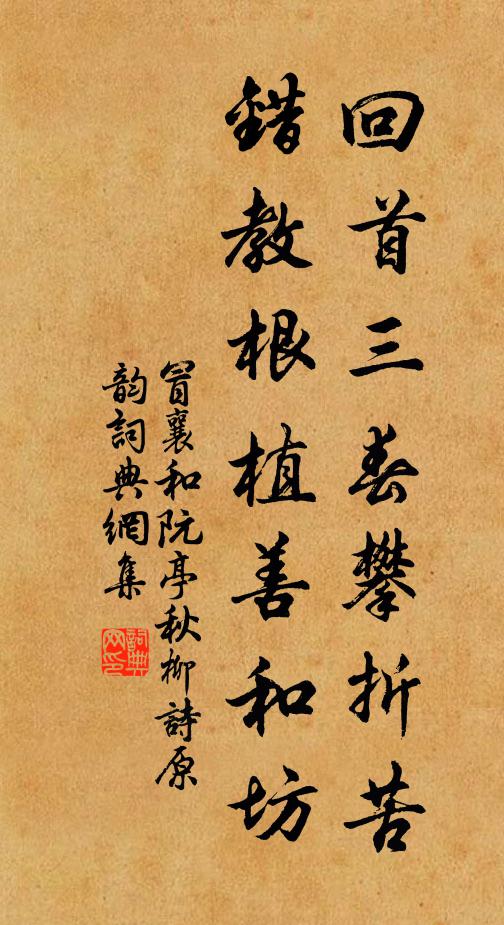 回首三春攀折苦
錯教根植善和坊
冒襄和阮亭秋柳詩原
韵詞典網集
詞典网印